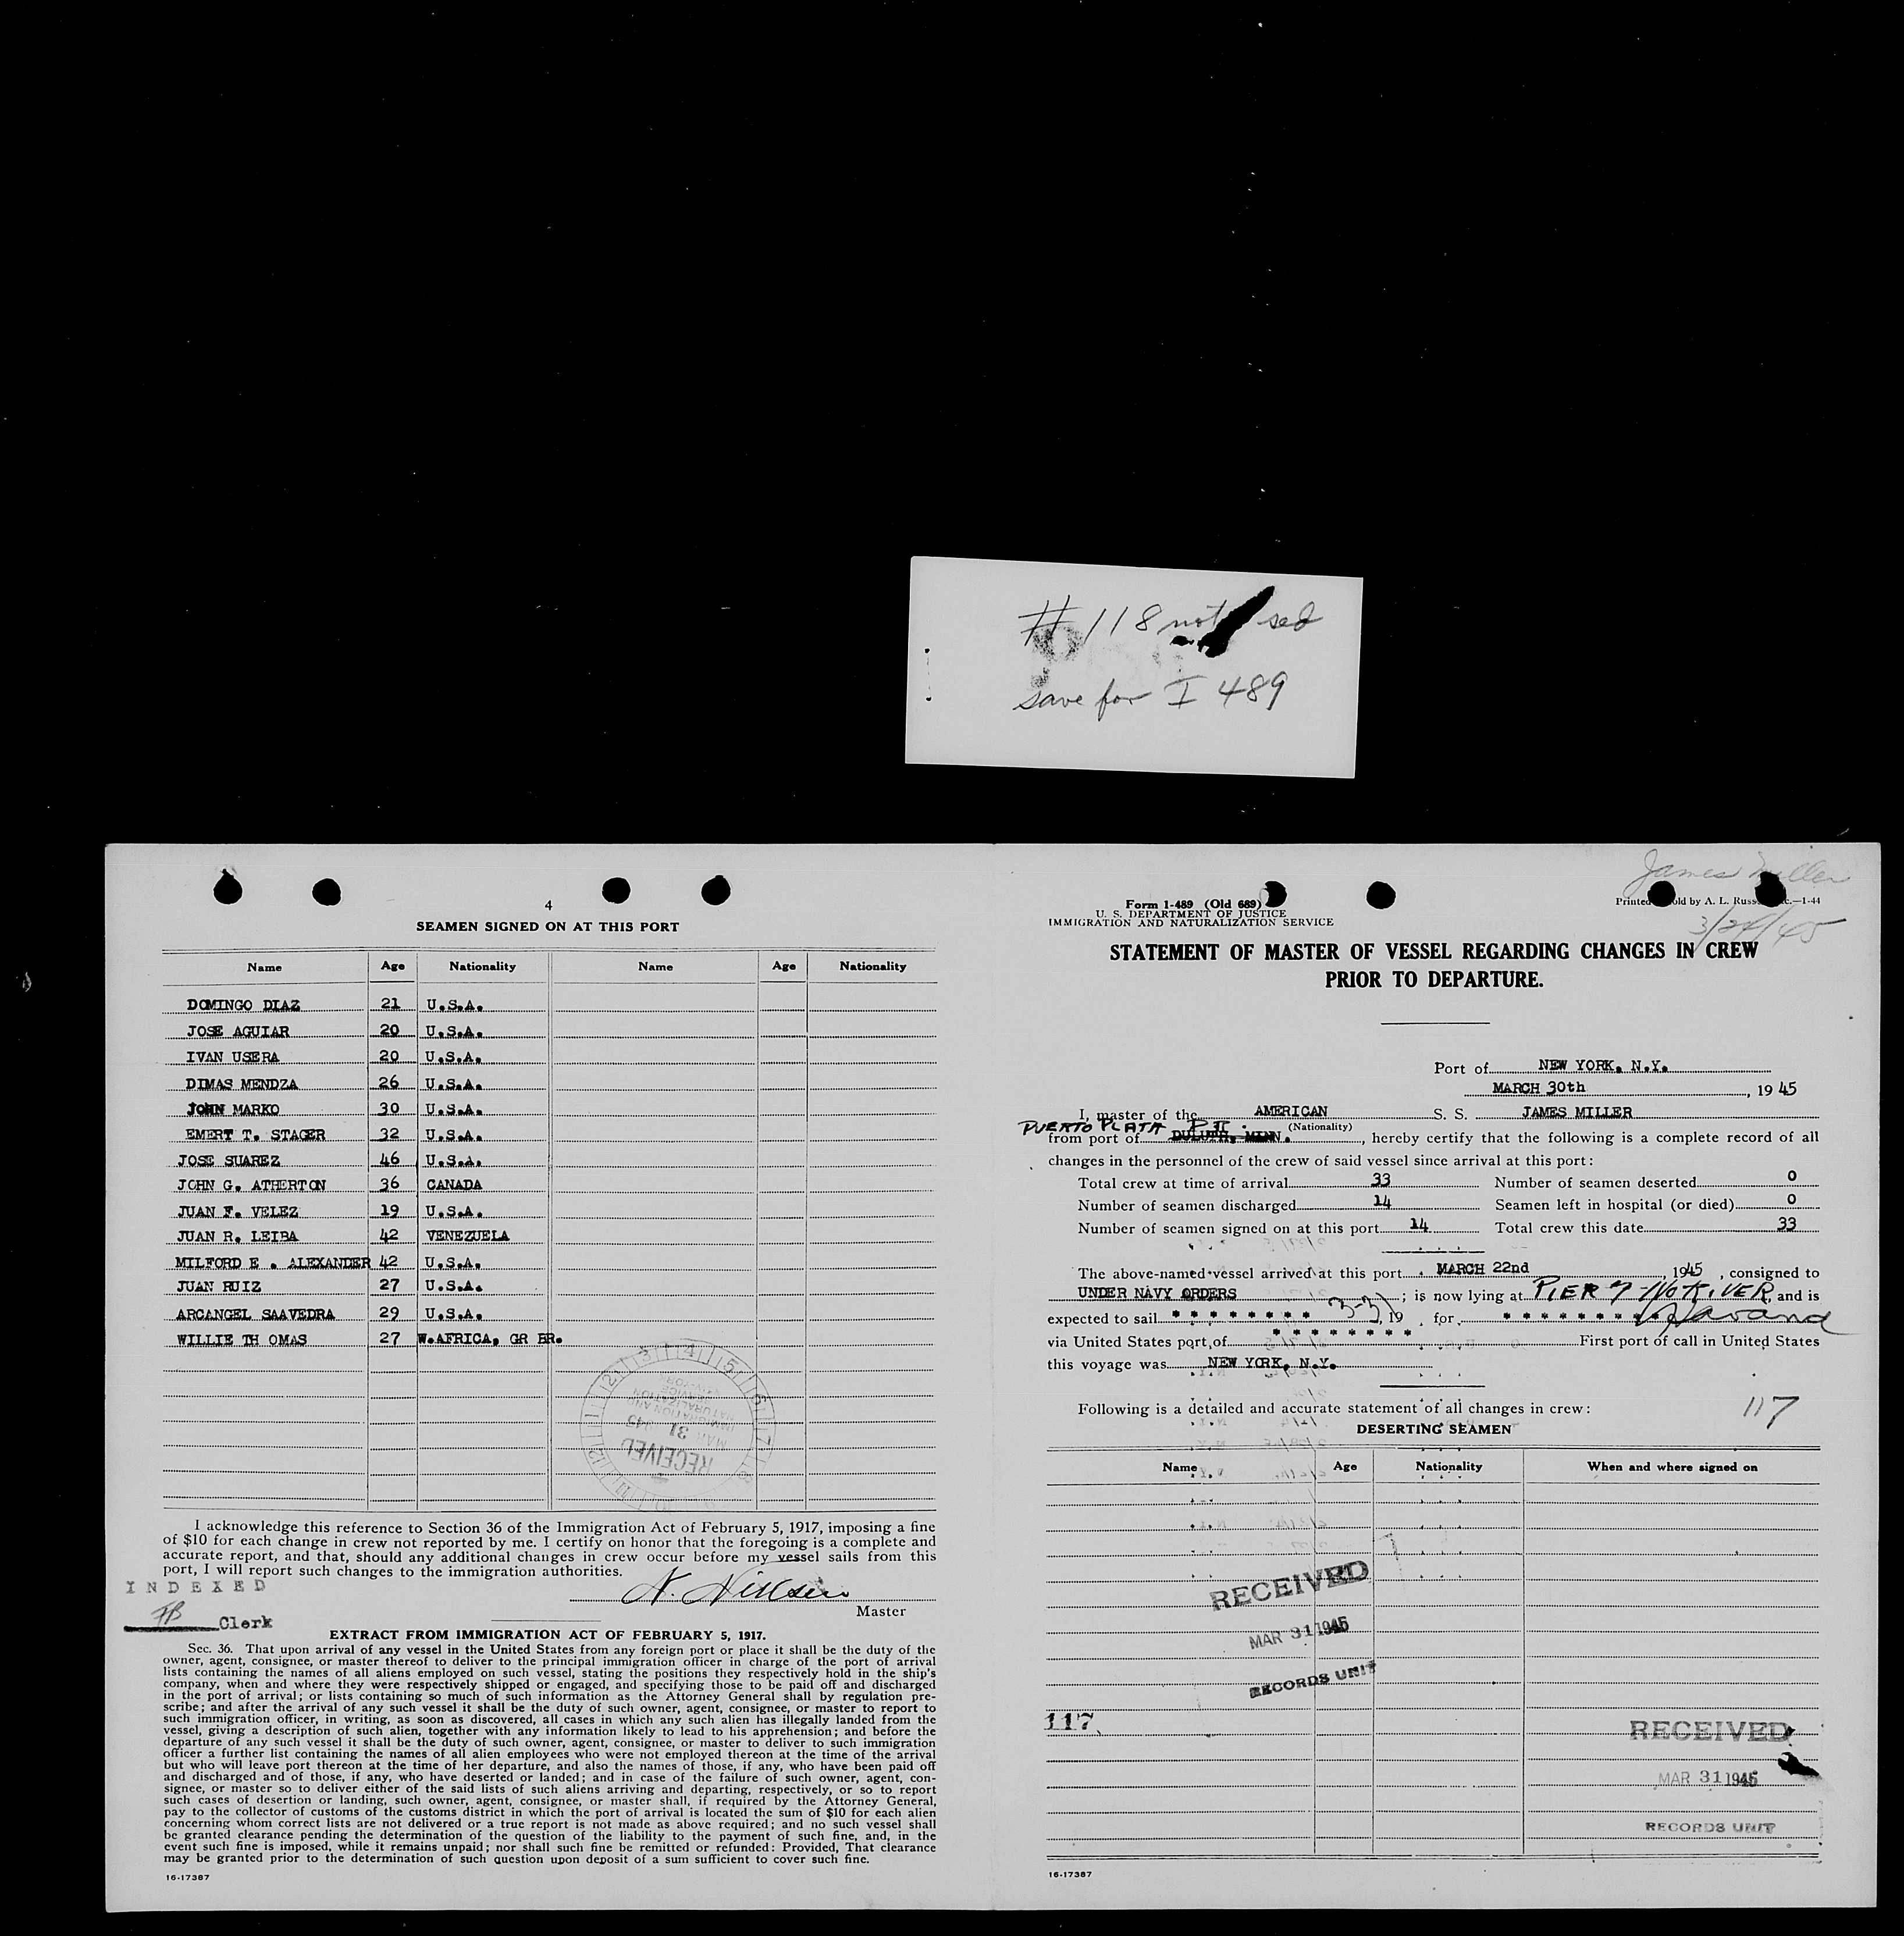 # 118 not sed
save for I 489
4
SEAMEN SIGNED ON AT THIS PORT
Name Age Nationality Name Age Nationality
DOMINGO DIAZ 21 U.S.A.
JOSE AGUIAR 20 U.S.A.
IVAN USERA 20 U.S.A.
DIMAS MENDZA 26 U.S.A.
JOHN MARKO 30 U.S.A.
EMERT T. STAGER 32 U.S.A.
JOSE SUAREZ 46 U.S.A.
JOHN G. ATHERTON 36 CANADA
JUAN F. VELEZ 19 U.S.A.
JUAN R. LEIBA 42 VENEZUELA
MILFORD E . ALEXANDER 42 U.S.A.
JUAN RUIZ 27 U.S.A.
ARCANGEL SAAVEDRA 29 U.S.A.
WILLIE TH OMAS 27 W.AFRICA, GR BR.
RECEIVED
MAR 31 1945
IMMIGRATION AND
NATURALIZATION
SERVICE
I acknowledge this reference to Section 36 of the Immigration Act of February 5, 1917, imposing a fine
of $10 for each change in crew not reported by me. I certify on honor that the foregoing is a complete and
accurate report, and that, should any additional changes in crew occur before my vessel sails from this
port, I will report such changes to the immigration authorities.
INDEXED
N. Nielsen
Master
Clerk
EXTRACT FROM IMMIGRATION ACT OF FEBRUARY 5, 1917.
Sec. 36. That upon arrival of any vessel in the United States from any foreign port or place it shall be the duty of the
owner, agent, consignee, or master thereof to deliver to the principal immigration officer in charge of the port of arrival
lists containing the names of all aliens employed on such vessel, stating the positions they respectively hold in the ship's
company, when and where they were respectively shipped or engaged, and specifying those to be paid off and discharged
in the port of arrival; or lists containing so much of such information as the Attorney General shall by regulation pre-
scribe; and after the arrival of any such vessel it shall be the duty of such owner, agent, consignee, or master to report to
such immigration officer, in writing, as soon as discovered, all cases in which any such alien has illegally landed from the
vessel, giving a description of such alien, together with any information likely to lead to his apprehension; and before the
departure of any such vessel it shall be the duty of such owner, agent, consignee, or master to deliver to such immigration
officer a further list containing the names of all alien employees who were not employed thereon at the time of the arrival
but who will leave port thereon at the time of her departure, and also the names of those, if any, who have been paid off
and discharged and of those, if any, who have deserted or landed; and in case of the failure of such owner, agent, con-
signee, or master so to deliver either of the said lists of such aliens arriving and departing, respectively, or so to report
such cases of desertion or landing, such owner, agent, consignee, or master shall, if required by the Attorney General,
pay to the collector of customs of the customs district in which the port of arrival is located the sum of $10 for each alien
concerning whom correct lists are not delivered or a true report is not made as above required; and no such vessel shall
be granted clearance pending the determination of the question of the liability to the payment of such fine, and, in the
event such fine is imposed, while it remains unpaid; nor shall such fine be remitted or refunded: Provided, That clearance
may be granted prior to the determination of such question upon deposit of a sum sufficient to cover such fine.
16-17387
James Miller
Form 1-489 (Old 689)
U. S. DEPARTMENT OF JUSTICE
IMMIGRATION AND NATURALIZATION SERVICE
Printed old by A. L. Russ c.—1-44
STATEMENT OF MASTER OF VESSEL REGARDING CHANGES IN CREW
PRIOR TO DEPARTURE.
Port of NEW YORK, N.Y.
MARCH 30th, 1945
I, master of the AMERICAN S. S. JAMES MILLER
(Nationality)
PUERTO PLATA
from port of DULUTH, MINN., hereby certify that the following is a complete record of all
changes in the personnel of the crew of said vessel since arrival at this port:
Total crew at time of arrival 33 Number of seamen deserted 0
Number of seamen discharged 14 Seamen left in hospital (or died) 0
Number of seamen signed on at this port 14 Total crew this date 33
The above-named vessel arrived at this port MARCH 22nd 1945, consigned to
UNDER NAVY ORDERS; is now lying at PIER 7 No RIVER, and is
expected to sail * * * * * * * * 3-31, 19 , for * * * * * * * * Havana
via United States port of * * * * * * * * First port of call in United States
this voyage was NEW YORK, N.Y.
Following is a detailed and accurate statement of all changes in crew: 117
DESERTING SEAMEN
Name Age Nationality When and where signed on
RECEIVED
MAR 31 1945
RECORDS UNIT
117
RECEIVED
MAR 31 1945
RECORDS UNIT
16-17387